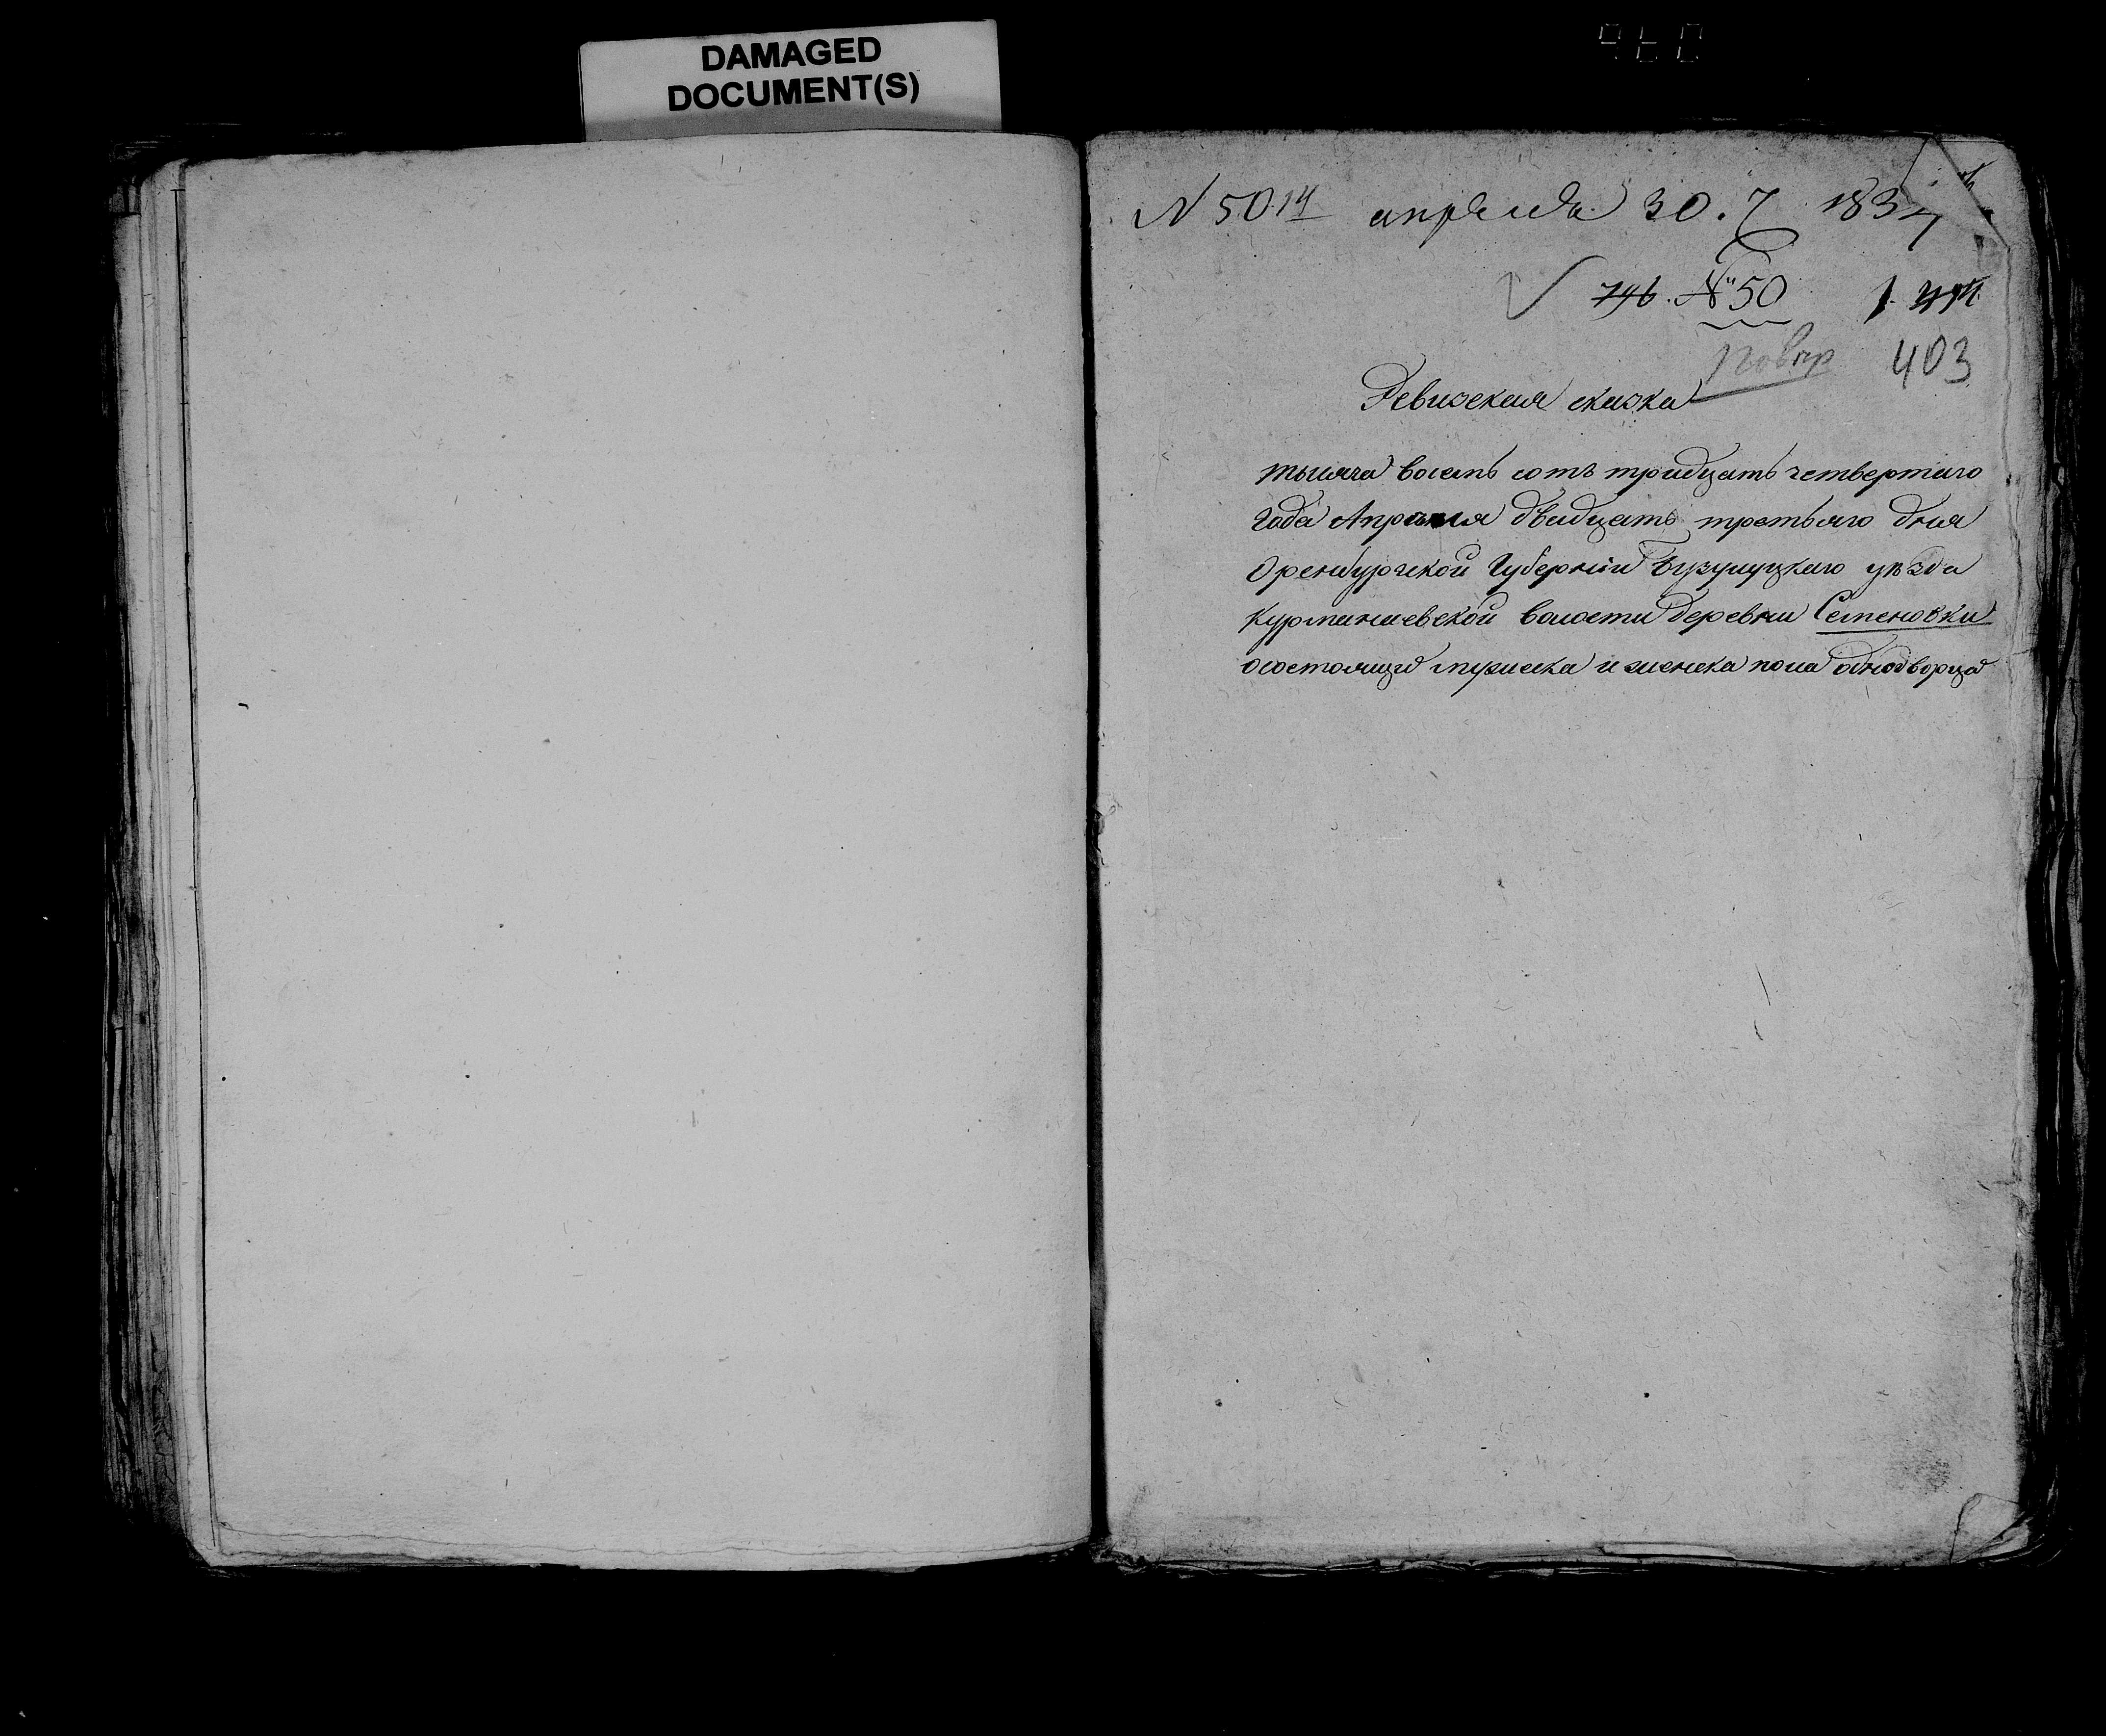 DAMAGED
DOCUMENT(S)
N 5014 апреля 30. 1834
746. № 50
повер 403
Ревизская сказка
тысяча восемь сотъ тридцать четвертаго
года Апреля двадцать третьяго дня
Оренбургской Губерніи Бузулуцкаго уѣзда
Курманаевской волости деревни Семеновки
осостоящих мужеска и женска пола однодворца